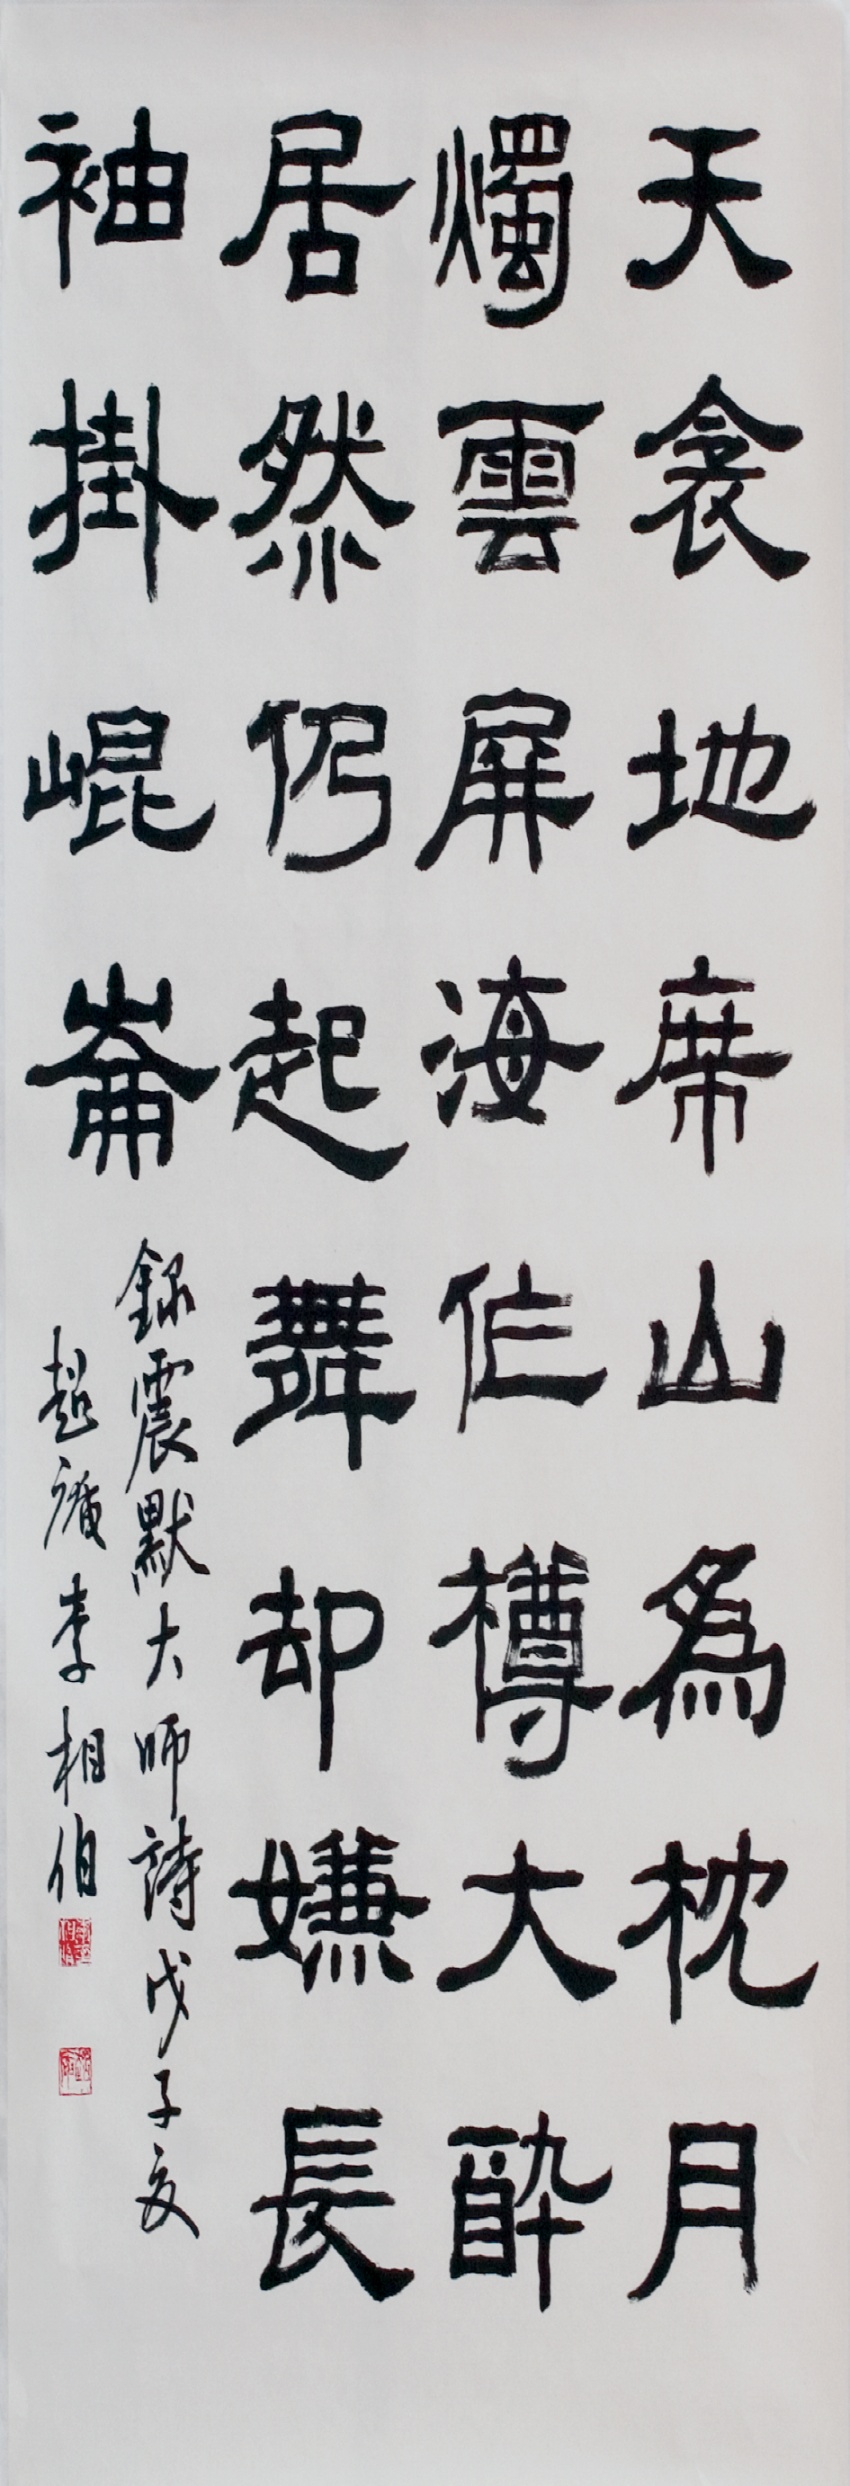 天衾地席山為枕月
燭雲屏海作樽大醉
居然仍起舞却嫌長
袖掛崐崙
錄震默大師詩戊子夏
李相伯